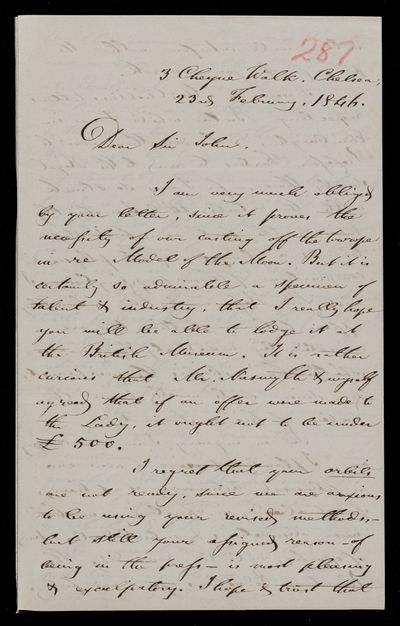 287
3 Cheyne Walk, Chelsea,
23rd February, 1846.
Dear Sir John,
I am very much obliged
by your letter, since it proves the
necessity of our casting off the towrope
in re Model of the Moon. But it is
certainly so admirable a specimen of
talent & industry, that I really hope
you will be able to lodge it at
the British Museum. It is rather
curious that Mr. Nasmyth & myself
agreed that if an offer were made to
the Lady, it ought not to be under
£ 500.
I regret that your orbits
are not ready, since we are anxious
to be using your revised methods –
but still your assigned reason – of
being in the press – is most pleasing
& exculpatory. I hope & trust that